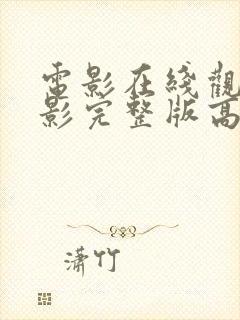 電影在綫觀
影完整版高
瀟竹